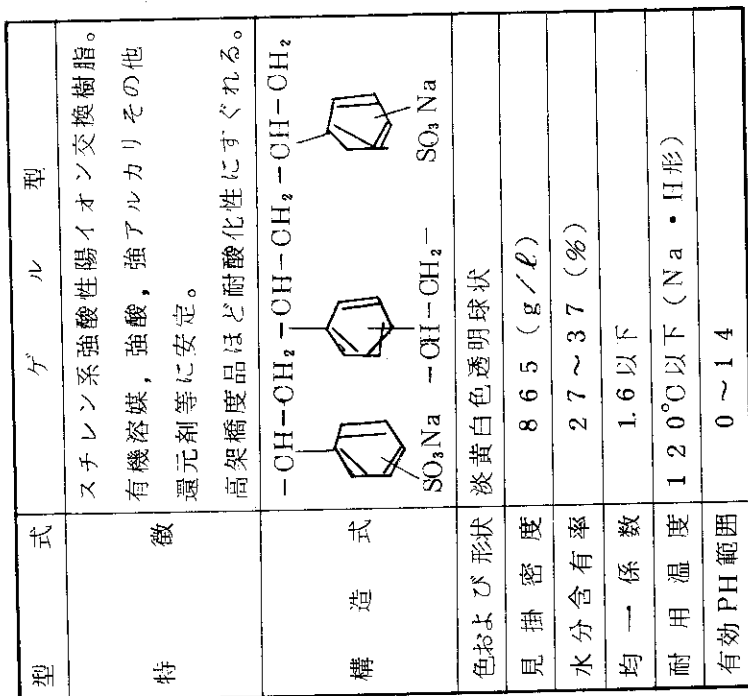 型式 ゲル型
特徴 スチレン系強酸性陽イオン交換樹脂。
有機溶媒，強酸，強アルカリその他
還元剤等に安定。
高架橋度品ほど耐酸化性にすぐれる。
構造式
-CH-CH2-CH-CH2-CH-CH2
SO3Na -CH-CH2- SO3Na
色および形状 淡黄白色透明球状
見掛密度 865 (g/ℓ)
水分含有率 27～37 (%)
均一係数 1.6以下
耐用温度 120℃以下 (Na・H形)
有効PH範囲 0～14